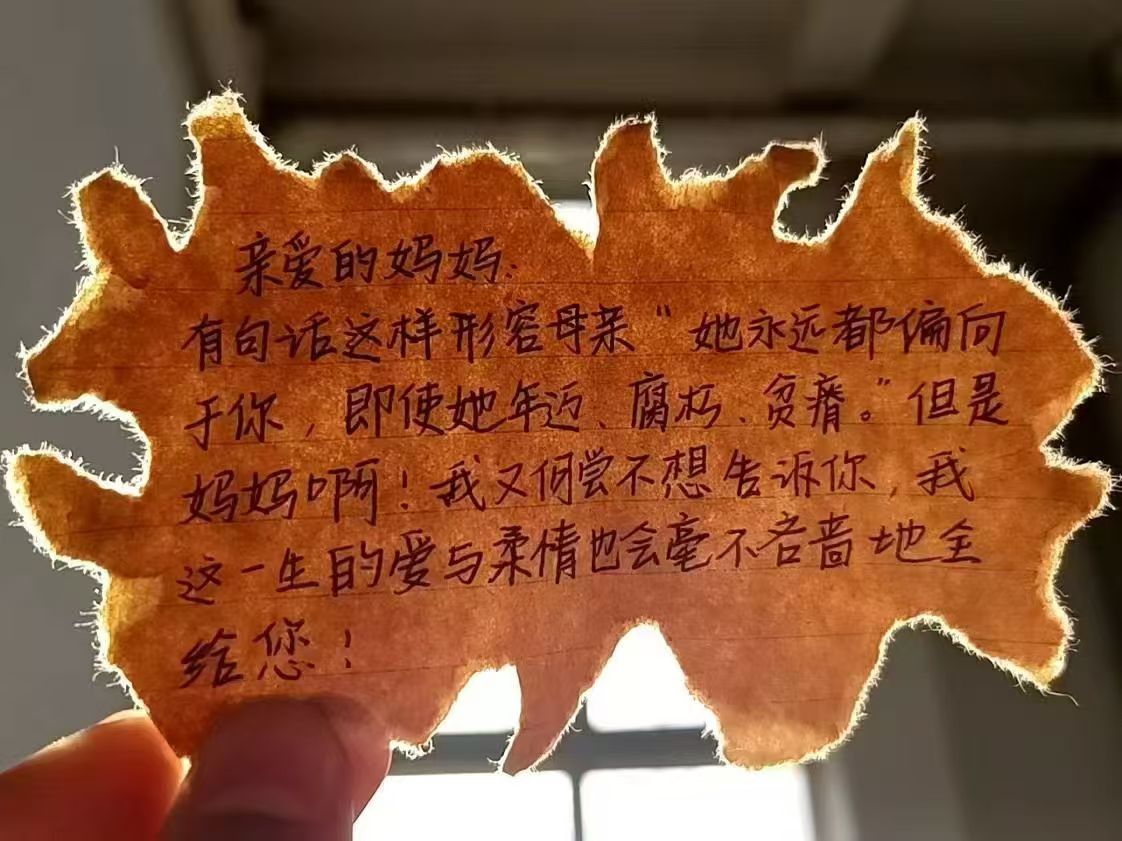 亲爱的妈妈:
有句话这样形容母亲“她永远都偏向
于你，即使她年迈、腐朽、贫瘠。”但是
妈妈啊！我又何尝不想告诉你，我
这一生的爱与柔情也会毫不吝啬地全
给您！